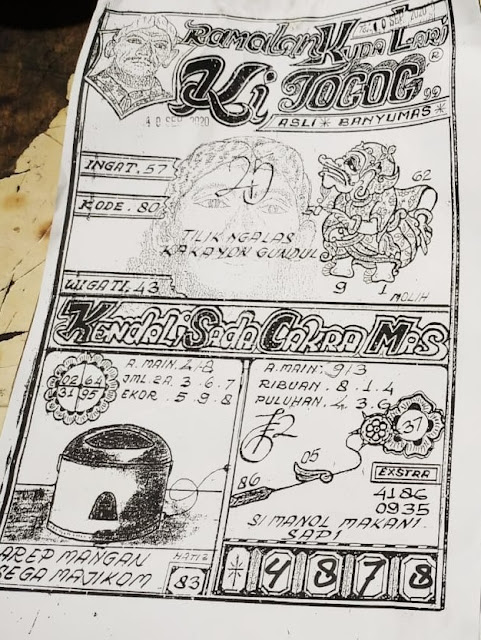 10 SEP 2020
RAMALAN KUDA LARI
KI TOGOG 99
®
10 SEP 2020
ASLI * BANYUMAS *
INGAT. 57
KODE. 80
WIGATI. 43
TILIK NGALAS
KAKAYON GUNDUL
62
9 1
MOLIH
KENDALI SADA CAKRA MAS
02 64
31 95
A. MAIN. 4/8
JML 2A. 3. 6. 7
EKOR. 5. 9. 8
AREP MANGAN
SEGA MAJIKOM
HATI2
83
A. MAIN: 9/3
RIBUAN. 8. 1. 4
PULUHAN. 4. 3. 6
37
05
86
EXSTRA
4186
0935
SI MANOL MAKANI
SAPI
* 4 8 7 8